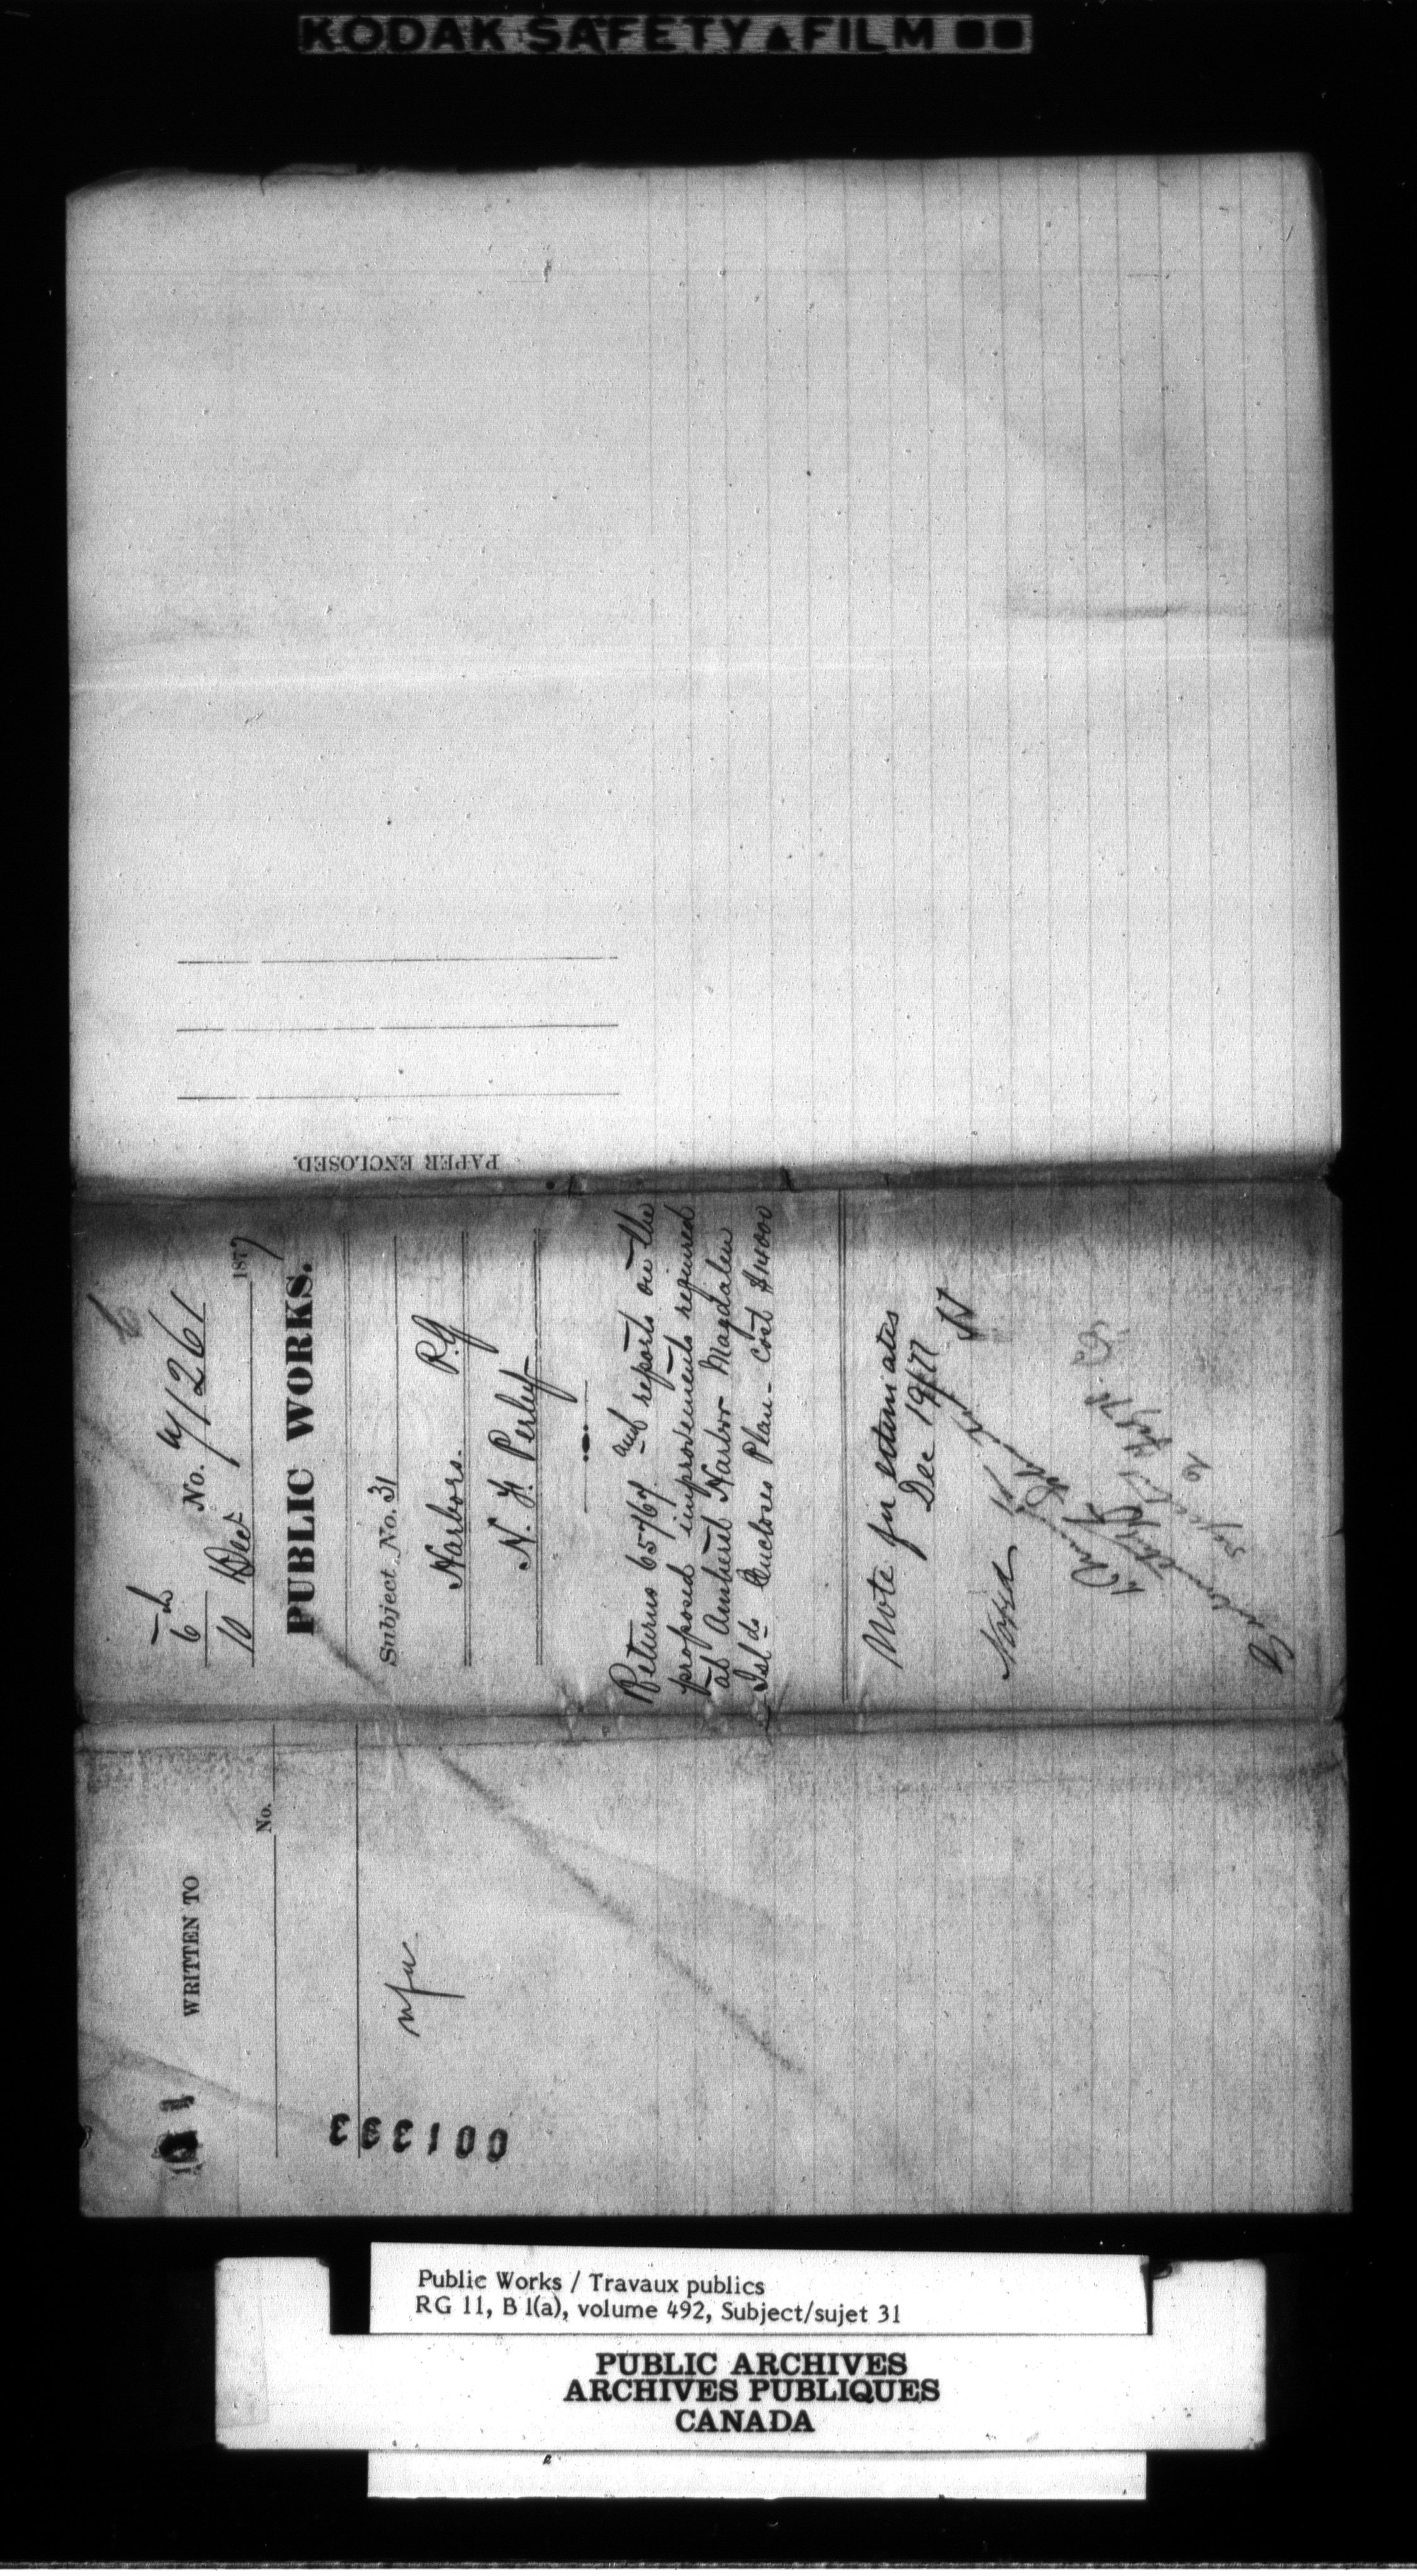 KODAK SAFETY FILM
PAPER ENCLOSED.
6
No. 71261
10 Dec 1877
PUBLIC WORKS.
Subject No. 31
Harbors. P.Q
H. F. Perley
Returns 65767 and reports on the
proposed improvements required
at Amherst Harbor Magdalen
Islds Encloses Plan - Cost $14000
Note for estimates
Dec 19/77
Noted
WRITTEN TO
No.
nfu
001333
Public Works / Travaux publics
RG 11, B 1(a), volume 492, Subject/sujet 31
PUBLIC ARCHIVES
ARCHIVES PUBLIQUES
CANADA